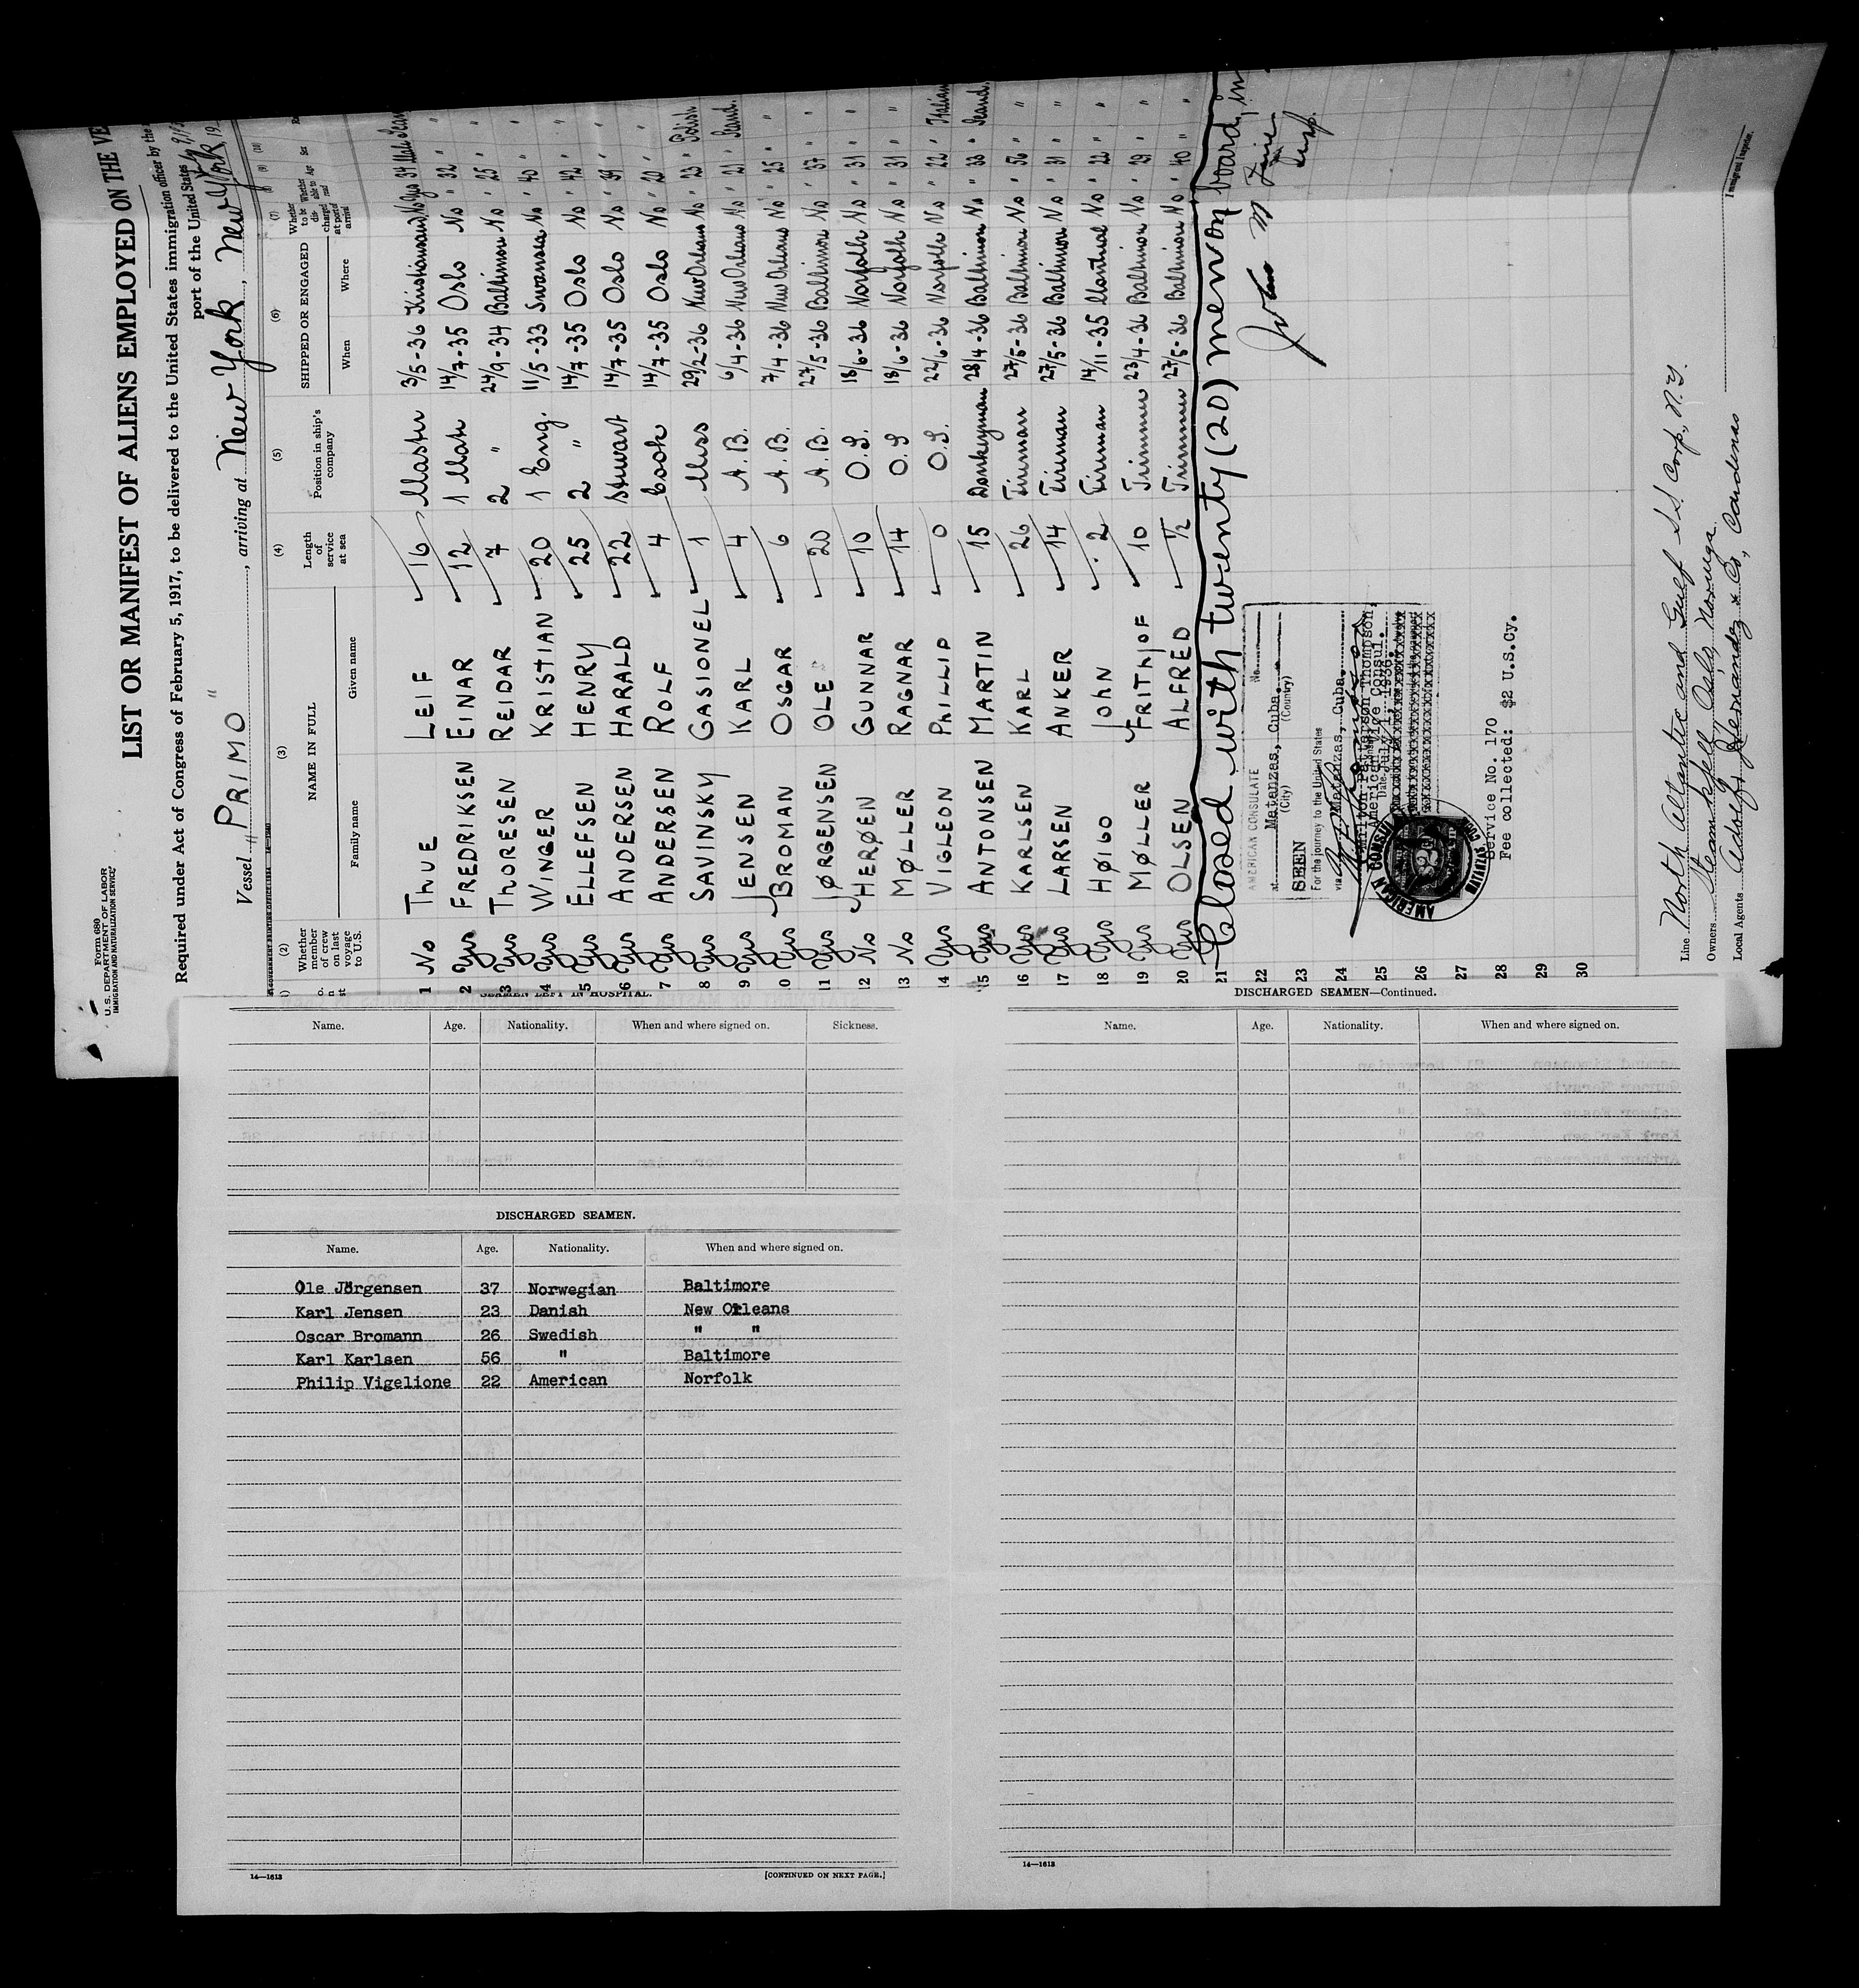 Form 680
U. S. DEPARTMENT OF LABOR
IMMIGRATION AND NATURALIZATION SERVICE
LIST OR MANIFEST OF ALIENS EMPLOYED ON THE VE
Required under Act of Congress of February 5, 1917, to be delivered to the United States immigration officer by the
port of the United States
Vessel "PRIMO", arriving at New York, New York, 19
(2) (3) (4) (5) (6) (7) (8) (9) (10)
Whether member of crew on last voyage to U.S.
NAME IN FULL
Family name Given name
Length of service at sea
Position in ship's company
SHIPPED OR ENGAGED
When Where
Whether to be discharged at port of arrival
Whether able to read
Age Sex
1 No THUE LEIF 16 Master 3/5-36 Kristiansand No Yes 34 Male Scand
2 Yes FREDRIKSEN EINAR 12 1 Mate 14/7-35 Oslo No " 32 " "
3 Yes THORESEN REIDAR 7 2 " 24/9-34 Baltimore No " 25 " "
4 Yes WINGER KRISTIAN 20 1 Eng. 11/5-33 Swansea No " 40 " "
5 Yes ELLEFSEN HENRY 25 2 " 14/7-35 Oslo No " 42 " "
6 Yes ANDERSEN HARALD 22 Stewart 14/7-35 Oslo No " 39 " "
7 Yes ANDERSEN ROLF 4 Cook 14/7-35 Oslo No " 20 " "
8 Yes SAVINSKY GASIONEL 1 Mess 29/2-36 New Orleans No " 23 " Polish
9 Yes JENSEN KARL 4 A.B. 6/4-36 New Orleans No " 21 " Scand.
10 Yes BROMAN OSGAR 6 A.B. 7/4-36 New Orleans No " 25 " "
11 Yes JØRGENSEN OLE 20 A.B. 27/5-36 Baltimore No " 37 " "
12 No HERØEN GUNNAR 10 O.S. 18/6-36 Norfolk No " 31 " "
13 No MØLLER RAGNAR 14 O.S 18/6-36 Norfolk No " 31 " "
14 Yes VIGLEON PHILLIP 0 O.S. 22/6-36 Norfolk No " 22 " Italian
15 Yes ANTONSEN MARTIN 15 Donkeyman 28/4-36 Baltimore No " 33 " Scand.
16 Yes KARLSEN KARL 26 Fireman 27/5-36 Baltimore No " 56 " "
17 Yes LARSEN ANKER 14 Fireman 27/5-36 Baltimore No " 31 " "
18 Yes HØIBO JOHN 2 Fireman 14/11-35 Montreal No " 22 " "
19 Yes MØLLER FRITHJOF 10 Trimmer 23/4-36 Baltimore No " 29 " "
20 Yes OLSEN ALFRED 1/2 Trimmer 27/5-36 Baltimore No " 40 " "
21 Closed with twenty (20) men on board, in
22
23
24
25
26
27
28
29
30
AMERICAN CONSULATE No.
at Matanzas, Cuba.
(City) (Country)
SEEN
For the journey to the United States
via Matanzas, Cuba.
Milton Patterson Thompson,
American Vice Consul.
Date July 1, 1936.
AMERICAN CONSUL
MATANZAS
Service No. 170
Fee collected: $2 U.S.Cy.
Line North Atlantic and Gulf S.S. Corp., N.Y.
Owners Steam Kjell Oslo, Noruega.
Local Agents Adolfo Hernandez & Co., Cardenas
Immigrant Inspector.
SEAMEN LEFT IN HOSPITAL.
Name. Age. Nationality. When and where signed on. Sickness.
DISCHARGED SEAMEN.
Name. Age. Nationality. When and where signed on.
Ole Jörgensen 37 Norwegian Baltimore
Karl Jensen 23 Danish New Orleans
Oscar Bromann 26 Swedish " "
Karl Karlsen 56 " Baltimore
Philip Vigelione 22 American Norfolk
14—1613 [CONTINUED ON NEXT PAGE.]
DISCHARGED SEAMEN—Continued.
Name. Age. Nationality. When and where signed on.
14—1613